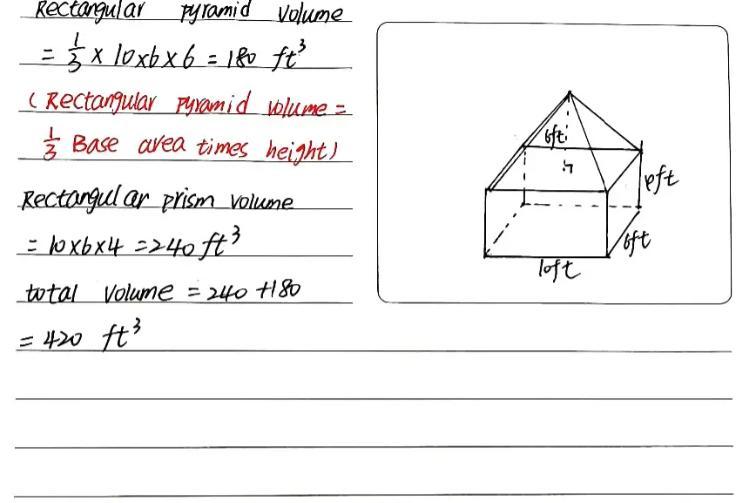 Rectangular pyramid volume
= 1/3 × 10×6×6 = 180 ft³
(Rectangular pyramid volume =
1/3 Base area times height)
Rectangular prism volume
= 10×6×4 = 240 ft³
total volume = 240 + 180
= 420 ft³
6ft
6ft
10ft